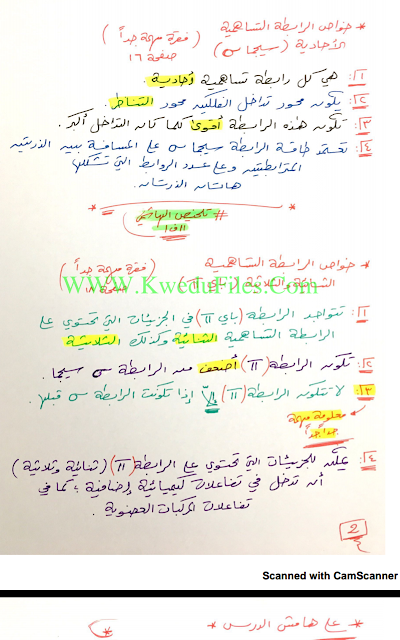 * خواص الرابطة التساهمية
الأحادية (سيجما س) (فقرة مهمة جداً) صفحة ١٦
١] هي كل رابطة تساهمية أحادية.
٢] يكون محور تداخل الفلكين محور التناظر.
٣] تكون هذه الرابطة أقوى كلما كان التداخل أكبر.
٤] تعتمد طاقة الرابطة سيجما س على المسافة بين الذرتين
المترابطتين وعلى عدد الروابط التي تشكلها
هاتان الذرتان.
# تلخيص الهاشمي
١١ف١
* خواص الرابطة التساهمية
الثنائية والثلاثية (باي π) (فقرة مهمة جداً) صفحة ١٨
www.KweduFiles.Com
١] تتواجد الرابطة (باي π) في الجزيئات التي تحتوي على
الرابطة التساهمية الثنائية وكذلك الثلاثية
٢] تكون الرابطة (π) أضعف من الرابطة س سيجما.
٣] لا تتكون الرابطة (π) إلا إذا تكونت الرابطة س قبلها.
معلومة مهمة
جداً جداً
٤] يمكن للجزيئات التي تحتوي على الرابطة (π) (ثنائية وثلاثية)
أن تدخل في تفاعلات كيميائية إضافية ؛ كما في
تفاعلات المركبات العضوية.
2
Scanned with CamScanner
* على هامش الدرس *